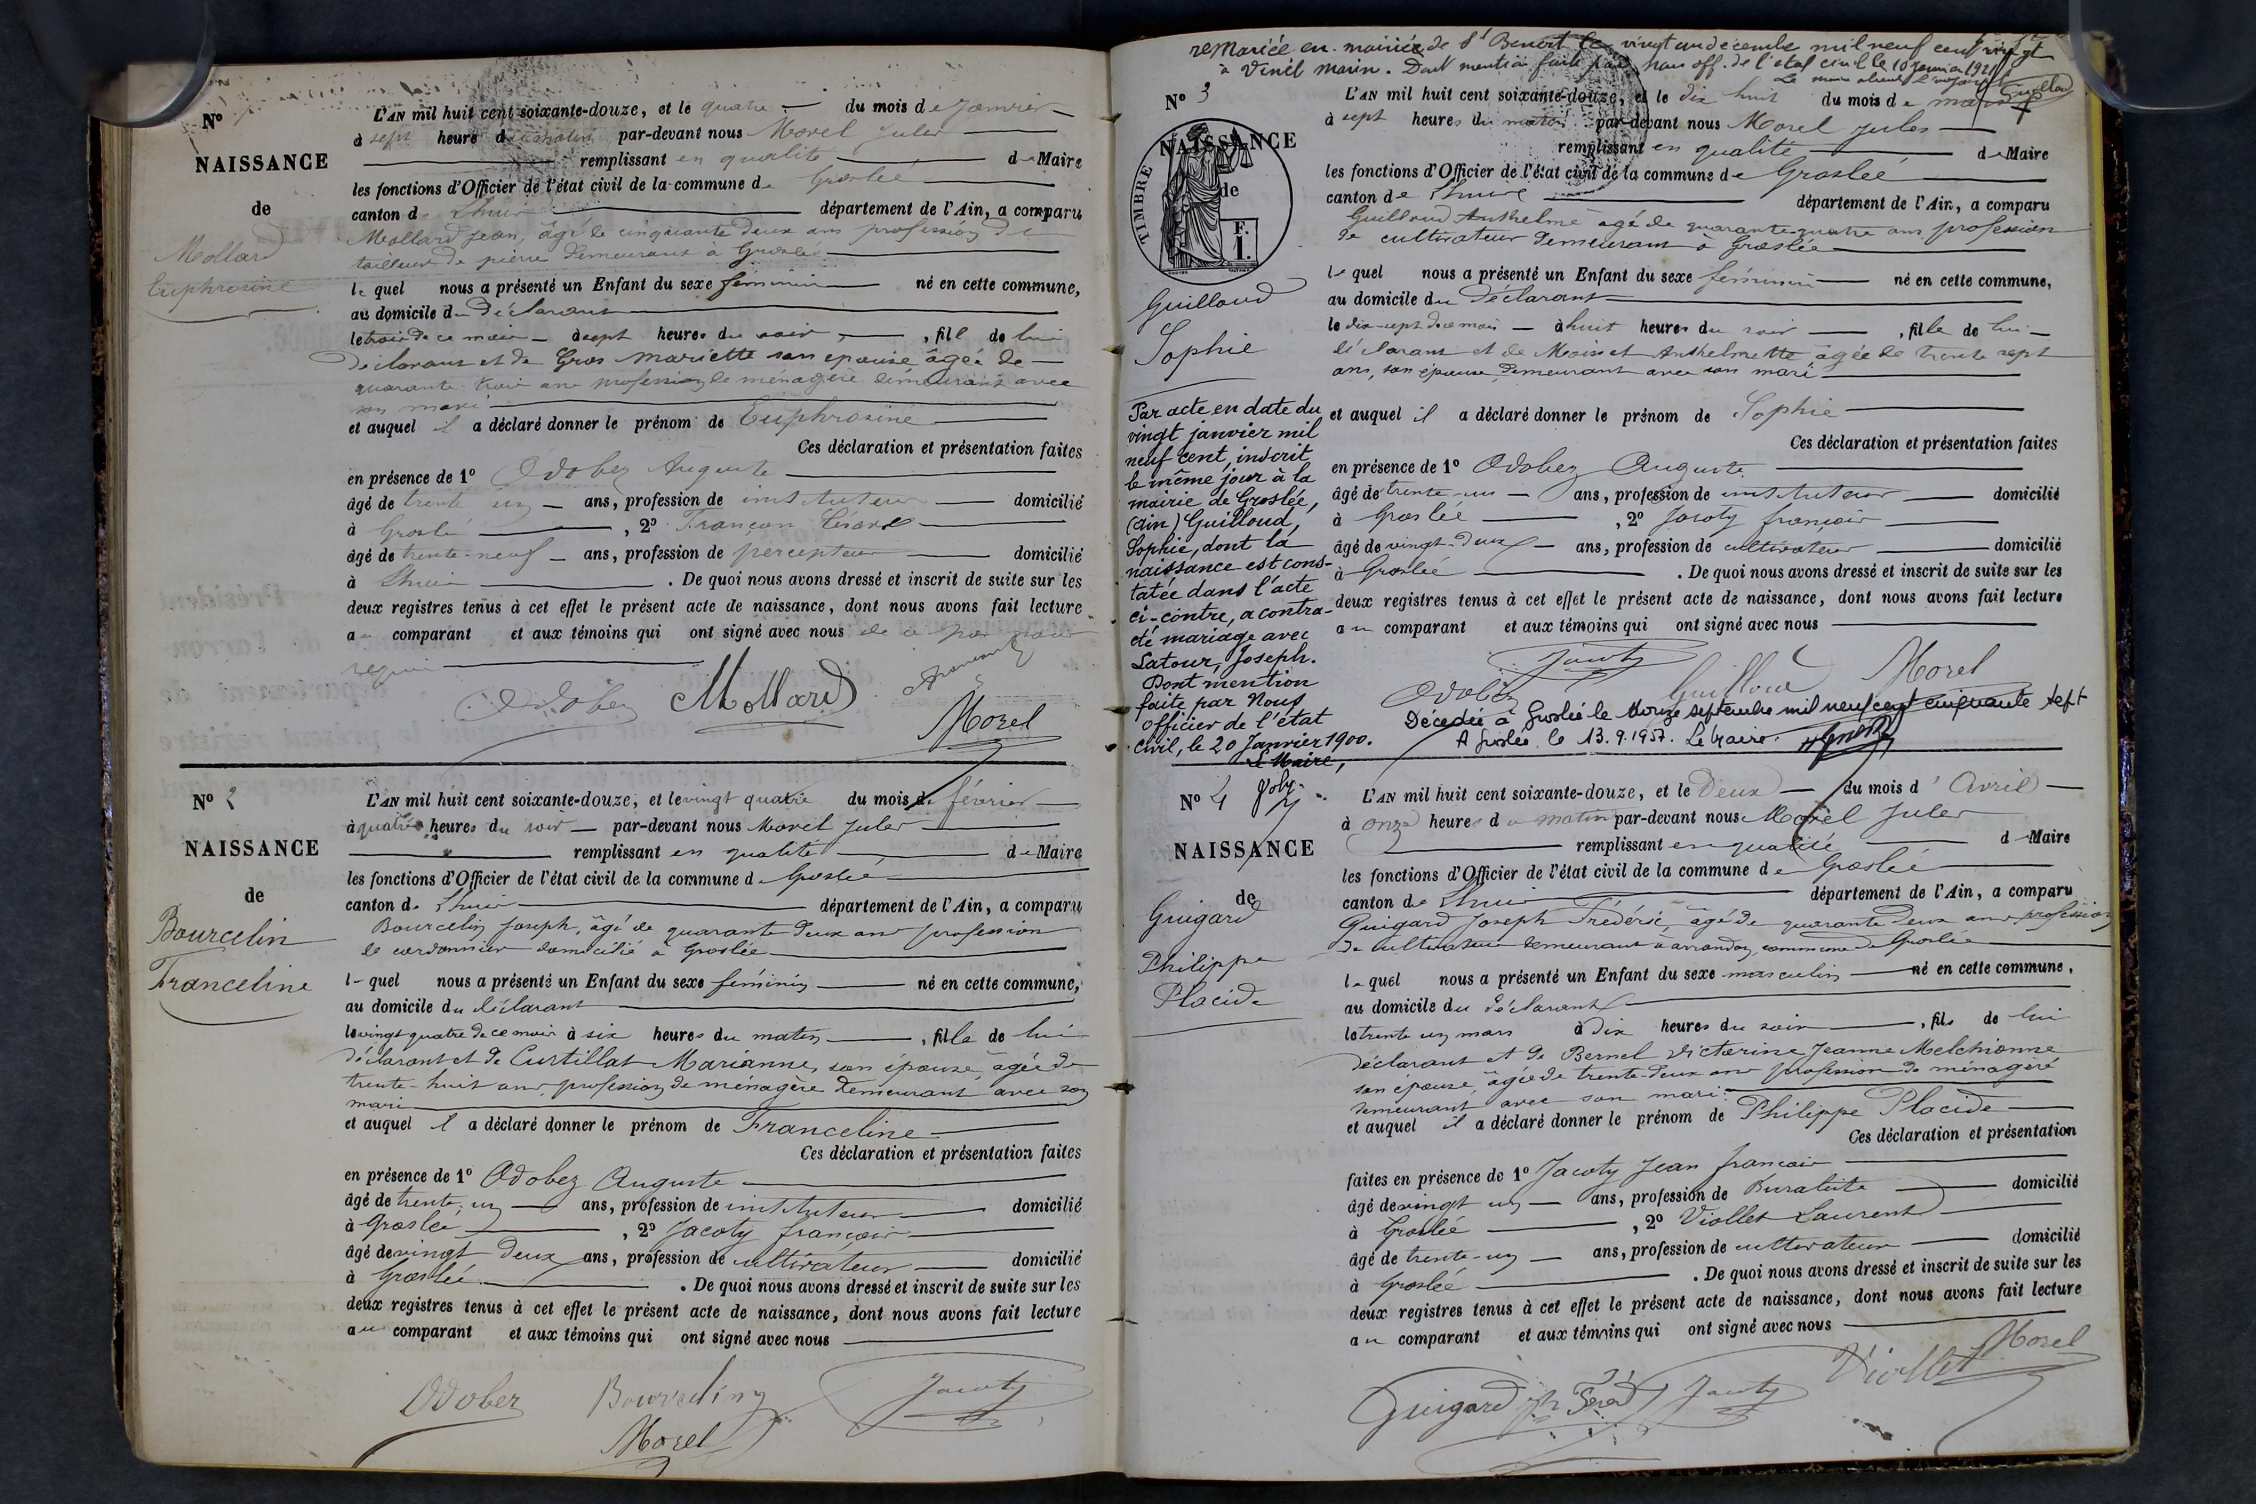 Nº
NAISSANCE
de
Mollard
Euphrosine
L'AN mil huit cent soixante-douze, et le quatre du mois de Janvier
à sept heure du matin par-devant nous Morel Jules
remplissant en qualité de Maire
les fonctions d'Officier de l'état civil de la commune de Groslée
canton de Lhuis département de l'Ain, a comparu
Mollard Jean, âgé de cinquante deux ans profession de
tailleur de pierre demeurant à Groslée
le quel nous a présenté un Enfant du sexe féminin né en cette commune,
au domicile du déclarant
le trois de ce mois à sept heures du soir, fille de lui
déclarant et de Gros Mariette son épouse âgée de
quarante trois ans profession de ménagère demeurant avec
son mari
et auquel il a déclaré donner le prénom de Euphrosine
Ces déclaration et présentation faites
en présence de 1º Odobez Auguste
âgé de trente un ans, profession de instituteur domicilié
à Groslée, 2º Françon
âgé de trente-neuf ans, profession de percepteur domicilié
à Lhuis. De quoi nous avons dressé et inscrit de suite sur les
deux registres tenus à cet effet le présent acte de naissance, dont nous avons fait lecture
au comparant et aux témoins qui ont signé avec nous de ce par nous
requis
Odobez Mollard
Morel
Nº 2
NAISSANCE
de
Bourcelin
Franceline
L'AN mil huit cent soixante-douze, et le vingt quatre du mois de février
à quatre heures du soir par-devant nous Morel Jules
remplissant en qualité de Maire
les fonctions d'Officier de l'état civil de la commune de Groslée
canton de Lhuis département de l'Ain, a comparu
Bourcelin Joseph, âgé de quarante deux ans profession
de cordonnier domicilié à Groslée
le quel nous a présenté un Enfant du sexe féminin né en cette commune,
au domicile du déclarant
le vingt quatre de ce mois à six heures du matin, fille de lui
déclarant et de Curtillat Marianne, son épouse, âgée de
trente-huit ans, profession de ménagère demeurant avec son
mari
et auquel il a déclaré donner le prénom de Franceline
Ces déclaration et présentation faites
en présence de 1º Odobez Auguste
âgé de trente un ans, profession de instituteur domicilié
à Groslée, 2º Jacoty françois
âgé de vingt deux ans, profession de cultivateur domicilié
à Groslée. De quoi nous avons dressé et inscrit de suite sur les
deux registres tenus à cet effet le présent acte de naissance, dont nous avons fait lecture
au comparant et aux témoins qui ont signé avec nous
Odobez Bourcelin Jacoty
Morel
remariée en mairie de St Benoit le vingt un décembre mil neuf cent vingt
à Vinel Marin. Dont mention faite par nous off. de l'état civil le 10 Janvier 1921
Nº 3
NAISSANCE
de
TIMBRE
F.
1.
Guilloud
Sophie
Par acte en date du
vingt janvier mil
neuf cent, inscrit
le même jour à la
mairie de Groslée,
(Ain) Guilloud,
Sophie, dont la
naissance est cons-
tatée dans l'acte
ci-contre, a contra-
cté mariage avec
Latour, Joseph.
Dont mention
faite par Nous
Officier de l'état
civil, le 20 Janvier 1900.
Le Maire,
Joly
L'AN mil huit cent soixante-douze, et le dix huit du mois de mars
à sept heures du matin par-devant nous Morel Jules
remplissant en qualité de Maire
les fonctions d'Officier de l'état civil de la commune de Groslée
canton de Lhuis département de l'Ain, a comparu
Guilloud Anthelme âgé de quarante-quatre ans profession
de cultivateur demeurant à Groslée
le quel nous a présenté un Enfant du sexe féminin né en cette commune,
au domicile du déclarant
le dix-sept de ce mois à huit heures du soir, fille de lui
déclarant et de Moisset Anthelmette âgée de trente sept
ans, son épouse, demeurant avec son mari
et auquel il a déclaré donner le prénom de Sophie
Ces déclaration et présentation faites
en présence de 1º Odobez Auguste
âgé de trente-un ans, profession de instituteur domicilié
à Groslée, 2º Jacoty françois
âgé de vingt-deux ans, profession de cultivateur domicilié
à Groslée. De quoi nous avons dressé et inscrit de suite sur les
deux registres tenus à cet effet le présent acte de naissance, dont nous avons fait lecture
au comparant et aux témoins qui ont signé avec nous
Jacoty
Odobez Guilloud Morel
Décédée à Groslée le onze septembre mil neuf cent cinquante sept
A Groslée le 13.9.1957. Le Maire.
Nº 4
NAISSANCE
de
Guigard
Philippe
Placide
L'AN mil huit cent soixante-douze, et le Deux du mois d'Avril
à onze heures du matin par-devant nous Morel Jules
remplissant en qualité de Maire
les fonctions d'Officier de l'état civil de la commune de Groslée
canton de Lhuis département de l'Ain, a comparu
Guigard Joseph Frédéric, âgé de quarante deux ans profession
de cultivateur demeurant à arrandon, commune de Groslée
le quel nous a présenté un Enfant du sexe masculin né en cette commune,
au domicile du déclarant
le trente un mars à dix heures du soir, fils de lui
déclarant et de Bernel Victorine Jeanne Melchionne
son épouse, âgée de trente-deux ans profession de ménagère
demeurant avec son mari
et auquel il a déclaré donner le prénom de Philippe Placide
Ces déclaration et présentation
faites en présence de 1º Jacoty Jean françois
âgé de vingt un ans, profession de Buraliste domicilié
à Groslée, 2º Viollet Laurent
âgé de trente-un ans, profession de cultivateur domicilié
à Groslée. De quoi nous avons dressé et inscrit de suite sur les
deux registres tenus à cet effet le présent acte de naissance, dont nous avons fait lecture
au comparant et aux témoins qui ont signé avec nous
Viollet Morel
Guigard Jacoty